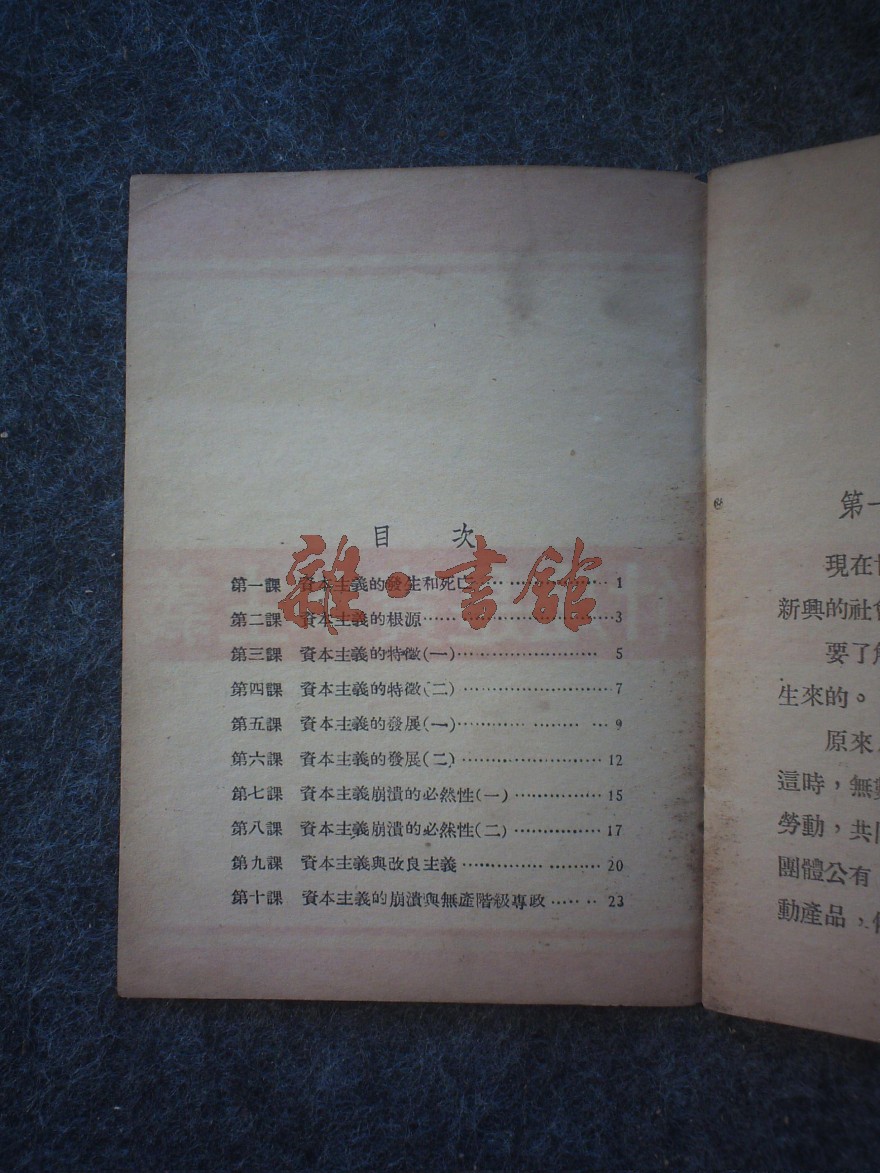 目 次
第一課 資本主義的發生和死亡…………………… 1
第二課 資本主義的根源……………………3
第三課 資本主義的特徵(一)………………… 5
第四課 資本主義的特徵(二)…………………7
第五課 資本主義的發展(一)………………… 9
第六課 資本主義的發展(二)…………………12
第七課 資本主義崩潰的必然性(一)……………15
第八課 資本主義崩潰的必然性(二)……………17
第九課 資本主義與改良主義…………………20
第十課 資本主義的崩潰與無產階級專政………23
雜·書館
第一
現在
新興的社會
要了
生來的。
原來
這時，無
勞動，共
團體公有
動產品，